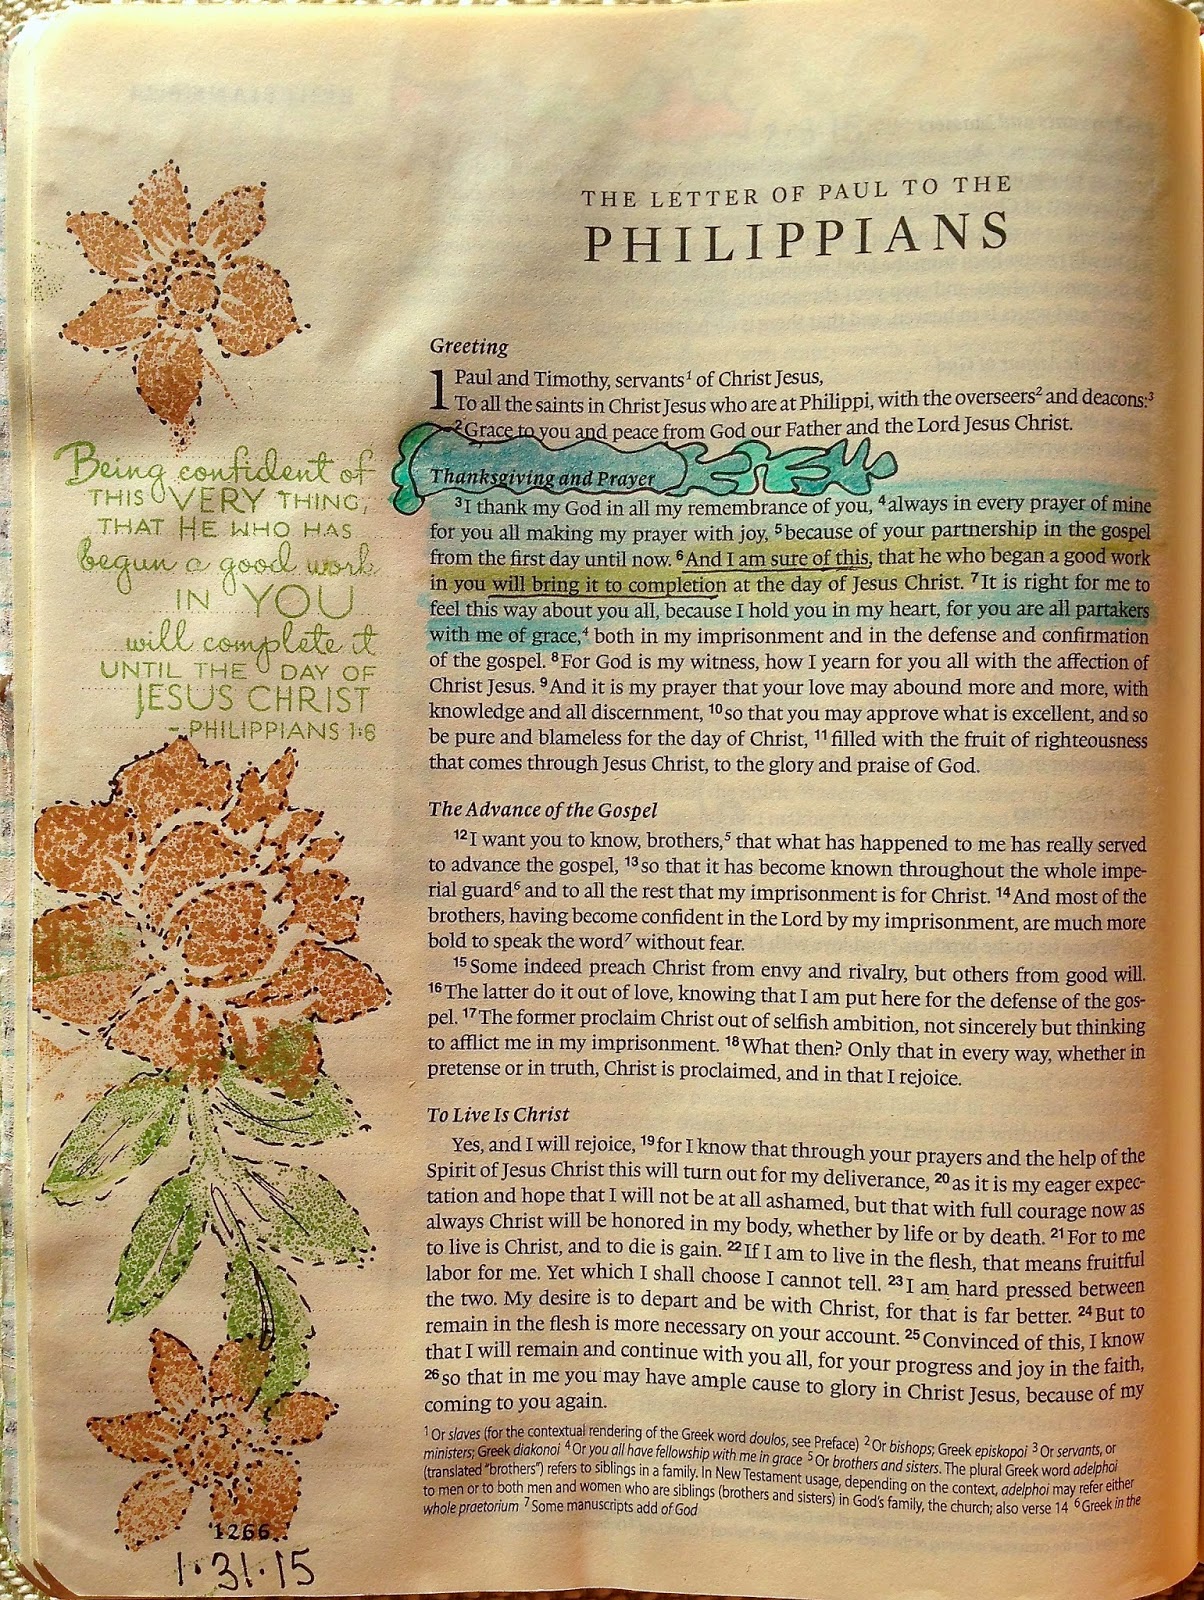 THE LETTER OF PAUL TO THE
PHILIPPIANS
Being confident of
THIS VERY THING,
THAT HE WHO HAS
begun a good work
IN YOU
will complete it
UNTIL THE DAY OF
JESUS CHRIST
- PHILIPPIANS 1:6
Greeting
1 Paul and Timothy, servants¹ of Christ Jesus,
To all the saints in Christ Jesus who are at Philippi, with the overseers² and deacons:³
²Grace to you and peace from God our Father and the Lord Jesus Christ.
Thanksgiving and Prayer
³I thank my God in all my remembrance of you, ⁴always in every prayer of mine
for you all making my prayer with joy, ⁵because of your partnership in the gospel
from the first day until now. ⁶And I am sure of this, that he who began a good work
in you will bring it to completion at the day of Jesus Christ. ⁷It is right for me to
feel this way about you all, because I hold you in my heart, for you are all partakers
with me of grace,⁴ both in my imprisonment and in the defense and confirmation
of the gospel. ⁸For God is my witness, how I yearn for you all with the affection of
Christ Jesus. ⁹And it is my prayer that your love may abound more and more, with
knowledge and all discernment, ¹⁰so that you may approve what is excellent, and so
be pure and blameless for the day of Christ, ¹¹filled with the fruit of righteousness
that comes through Jesus Christ, to the glory and praise of God.
The Advance of the Gospel
¹²I want you to know, brothers,⁵ that what has happened to me has really served
to advance the gospel, ¹³so that it has become known throughout the whole impe-
rial guard⁶ and to all the rest that my imprisonment is for Christ. ¹⁴And most of the
brothers, having become confident in the Lord by my imprisonment, are much more
bold to speak the word⁷ without fear.
¹⁵Some indeed preach Christ from envy and rivalry, but others from good will.
¹⁶The latter do it out of love, knowing that I am put here for the defense of the gos-
pel. ¹⁷The former proclaim Christ out of selfish ambition, not sincerely but thinking
to afflict me in my imprisonment. ¹⁸What then? Only that in every way, whether in
pretense or in truth, Christ is proclaimed, and in that I rejoice.
To Live Is Christ
Yes, and I will rejoice, ¹⁹for I know that through your prayers and the help of the
Spirit of Jesus Christ this will turn out for my deliverance, ²⁰as it is my eager expec-
tation and hope that I will not be at all ashamed, but that with full courage now as
always Christ will be honored in my body, whether by life or by death. ²¹For to me
to live is Christ, and to die is gain. ²²If I am to live in the flesh, that means fruitful
labor for me. Yet which I shall choose I cannot tell. ²³I am hard pressed between
the two. My desire is to depart and be with Christ, for that is far better. ²⁴But to
remain in the flesh is more necessary on your account. ²⁵Convinced of this, I know
that I will remain and continue with you all, for your progress and joy in the faith,
²⁶so that in me you may have ample cause to glory in Christ Jesus, because of my
coming to you again.
¹Or slaves (for the contextual rendering of the Greek word doulos, see Preface) ²Or bishops; Greek episkopoi ³Or servants, or
ministers; Greek diakonoi ⁴Or you all have fellowship with me in grace ⁵Or brothers and sisters. The plural Greek word adelphoi
(translated "brothers") refers to siblings in a family. In New Testament usage, depending on the context, adelphoi may refer either
to men or to both men and women who are siblings (brothers and sisters) in God's family, the church; also verse 14 ⁶Greek in the
whole praetorium ⁷Some manuscripts add of God
1266
1·31·15